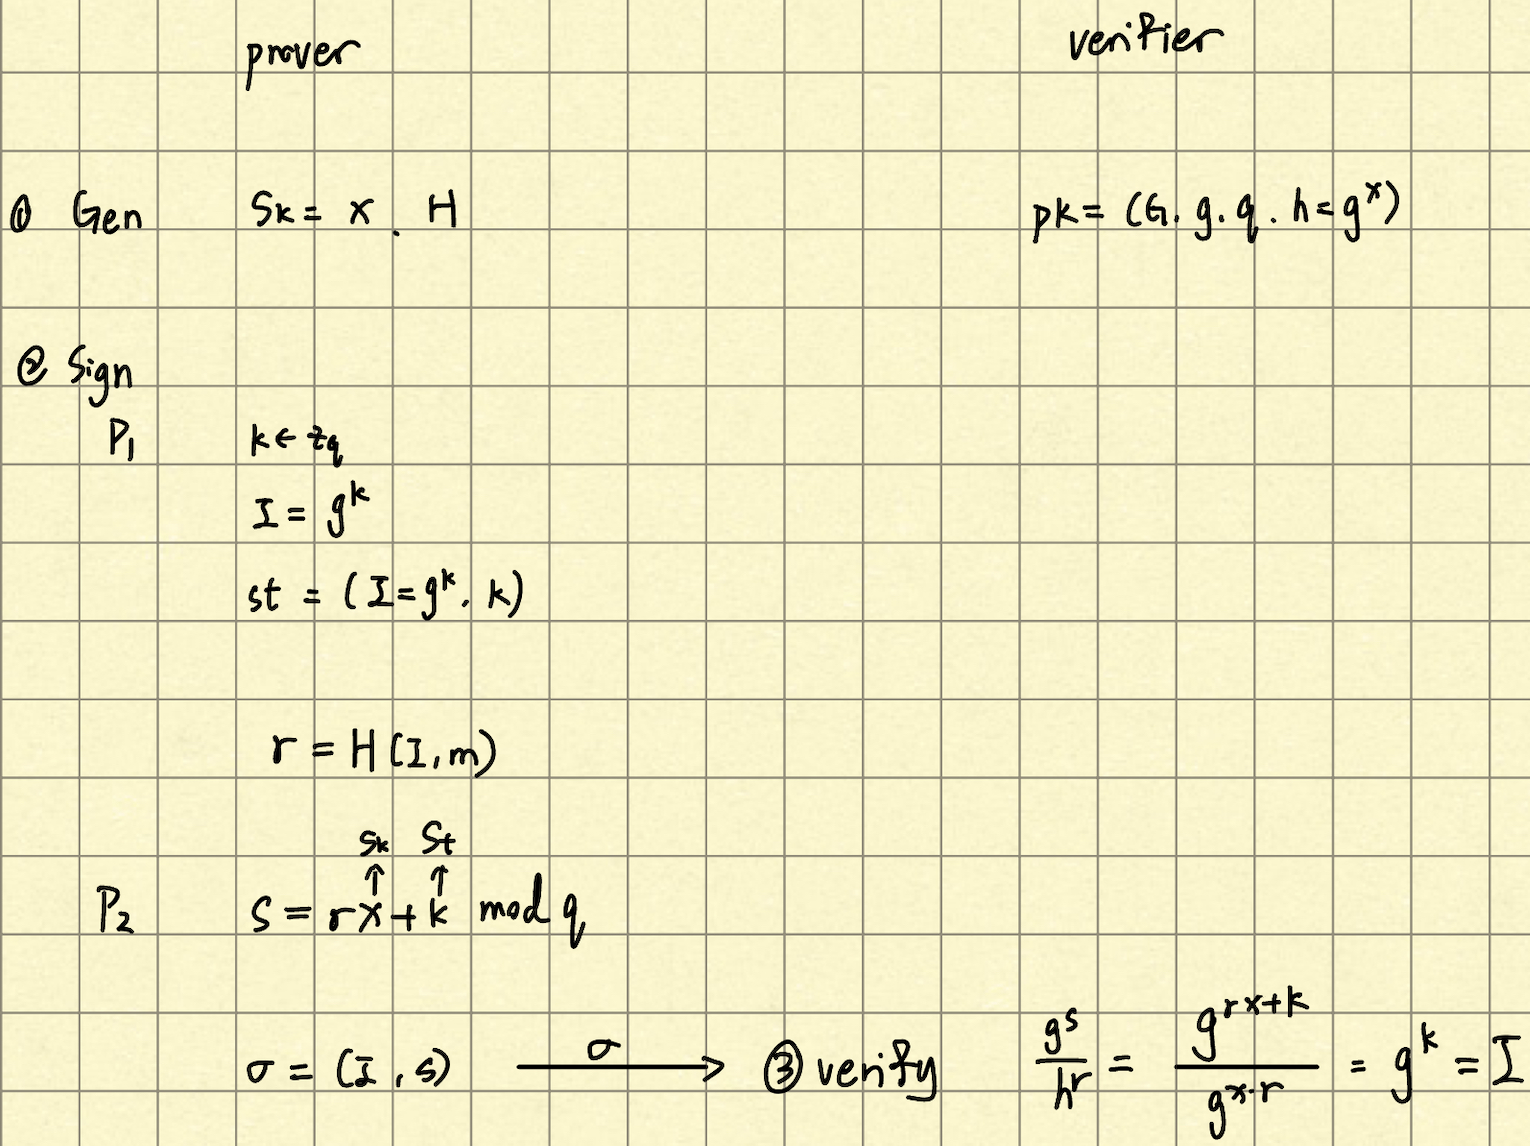 prover verifier
① Gen Sk = x . H pk = (G. g. q. h = g^x)
② Sign
P₁ k ← Zq
I = g^k
st = (I = g^k. k)
r = H(I, m)
sk St
↑ ↑
P₂ S = rx + k mod q
σ = (I, s) —σ→ ③ verify g^s / h^r = g^(rx+k) / g^(x·r) = g^k = I